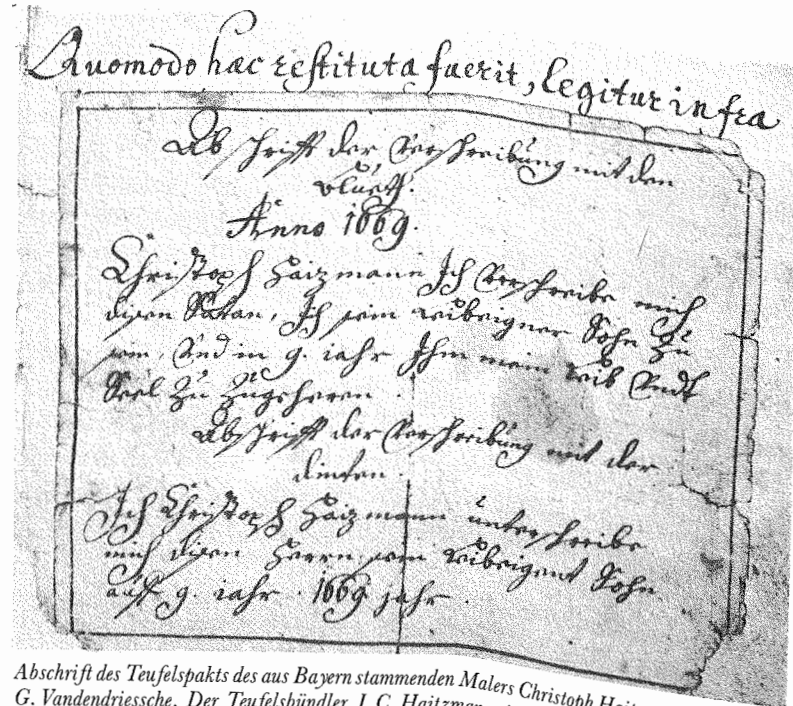 Quomodo haec restituta fuerit, legitur infra
Abschrifft der Verschreibung mit den
blueth.
Anno 1669.
Christoph Haizmann Ich Verschreibe mich
disen Satan, Ich sein leibeigner Sohn Zu
sein, Vnd in 9. iahr Ihm mein leib Vndt
Seel Zu Zugeheren.
Abschrifft der Verschreibung mit der
dinten.
Ich Christoph Haizmann unterschreibe
mich disen Herrn sein leibeigent Sohn
auff 9. iahr. 1669 jahr.
Abschrift des Teufelspakts des aus Bayern stammenden Malers Christoph
G. Vandendriessche, Der Teufelsbündler J. C.